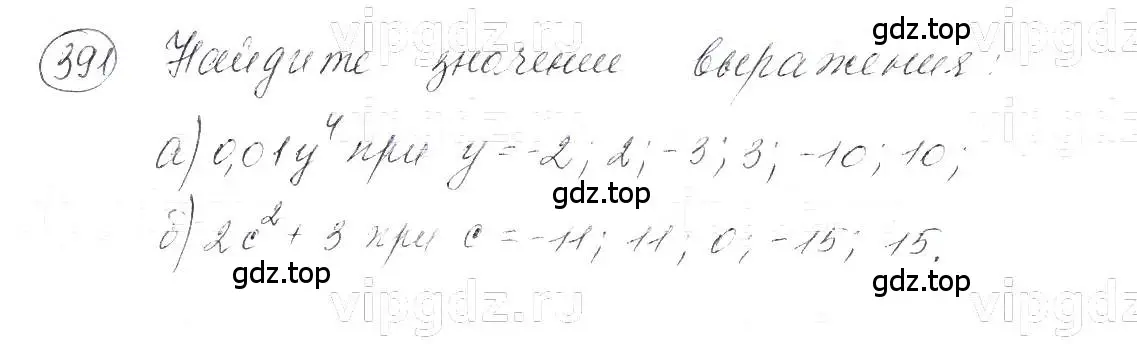 391 Найдите значение выражения:
а) 0,01y⁴ при y = -2; 2; -3; 3; -10; 10;
б) 2c² + 3 при c = -11; 11; 0; -15; 15.
gdz.top
gdz.top
gdz.top
gdz.top
gdz.top
vipgdz.ru
vipgdz.ru